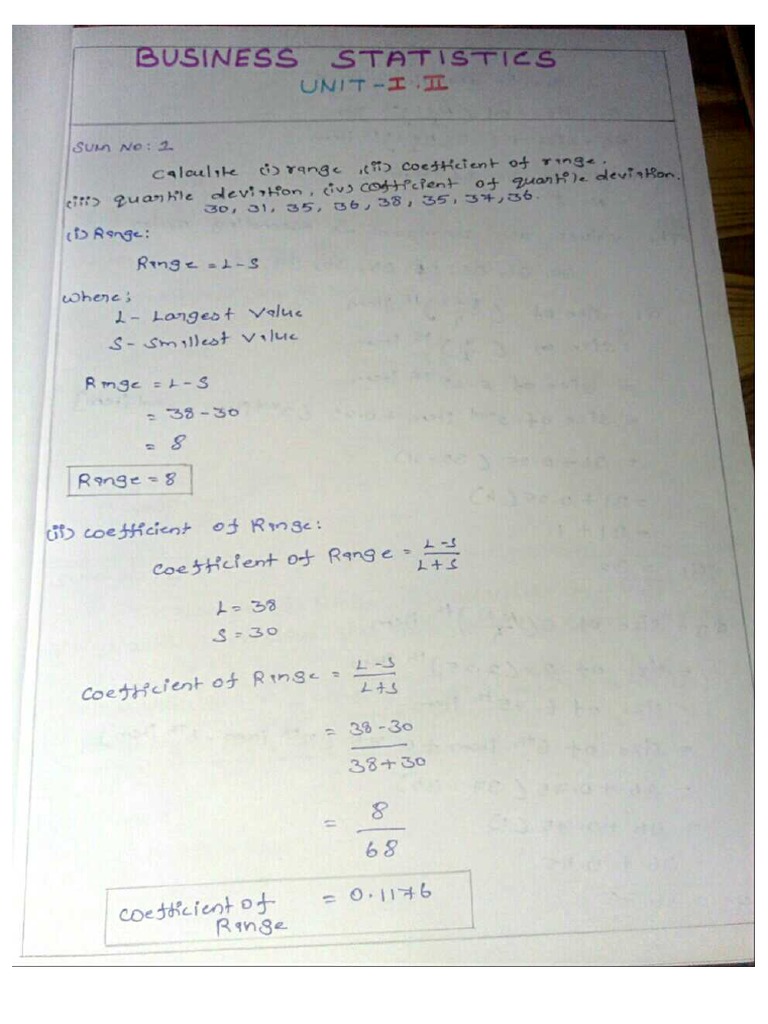 BUSINESS STATISTICS
UNIT-I.II
SUM NO: 1
Calculate (i) range, (ii) coefficient of range.
(iii) quartile deviation, (iv) cofficient of quartile deviation.
30, 31, 35, 36, 38, 35, 37, 36.
(i) Range:
Range = L-S
where;
L- Largest Value
S- Smallest Value
Range = L-S
= 38-30
= 8
Range = 8
(ii) coefficient of Range:
Coefficient of Range = L-S / L+S
L = 38
S = 30
Coefficient of Range = L-S / L+S
= 38-30 / 38+30
= 8 / 68
Coefficient of Range = 0.1176